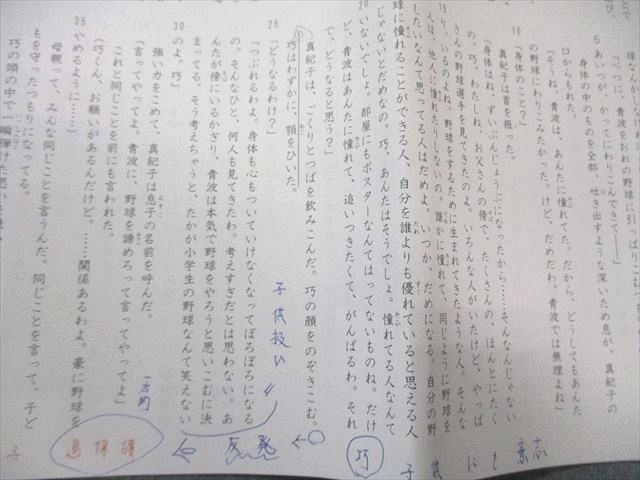 「べつに、青波をおれの野球に引っぱりこむ
5 あいつが、かってにわりこんできて――」
身体の中のものを全部、吐き出すような深いため息が、真紀子の
口からもれた。
「そうね、青波は、あんたに憧れてた。だから、どうしてもあんた
の野球にわりこみたかった。けど、だめだわ。青波では無理よね」
10「身体のこと？」
真紀子は首を振った。
「身体はね、ずいぶんじょうぶになったから……そんなんじゃない
の。巧、わたしね、お父さんの傍で、たくさんの、ほんとにたく
さんの野球選手を見てきたのよ。いろんな人がいたけど、やっぱ
15り、いるのよね、野球をするために生まれてきたような人。そんな
人は、他人に憧れたりしないの。誰かに憧れて、同じようにプレー
したいなんて思ってる人はだめよ。いつか、だめになる。自分の野
球に憧れることができる人、自分を誰よりも優れていると思える人
じゃないとだめなの。巧、あんたはそうでしょ。憧れてる人なんて
20いないでしょ。部屋にもポスターなんてはってないものね。だけ
ど、青波はあんたに憧れて、追いつきたくて、がんばるわ。それ
で、どうなると思う？」
真紀子は、ごくりとつばを飲みこんだ。巧の顔をのぞきこむ。
巧はわずかに、顎をひいた。
25「どうなるわけ？」
「つぶれるわよ。身体も心もついていけなくなってぼろぼろになる
の。そんなひと、何人も見てきたわ。考えすぎだとは思わない。あ
んたが傍にいるかぎり、青波は本気で野球をやろうと思いこむに決
まってる。そう考えちゃうと、たかが小学生の野球なんて笑えない
30のよ、巧」
強い力をこめて、真紀子は息子の名前を呼んだ。
「言ってやってよ、青波に、野球を諦めろって言ってやってよ」
これと同じことを前にも言われた。
（巧くん、お願いがあるんだけど。……関係あるわよ。豪に野球を
35やめるように……）
母親って、みんな同じことを言うんだ。同じことを言って、子ど
もを守ったつもりになってる。
巧の頭の中で一瞬弾けた思いを
子供扱い
一方的
巧
子供にも意志
反発
過保護
子